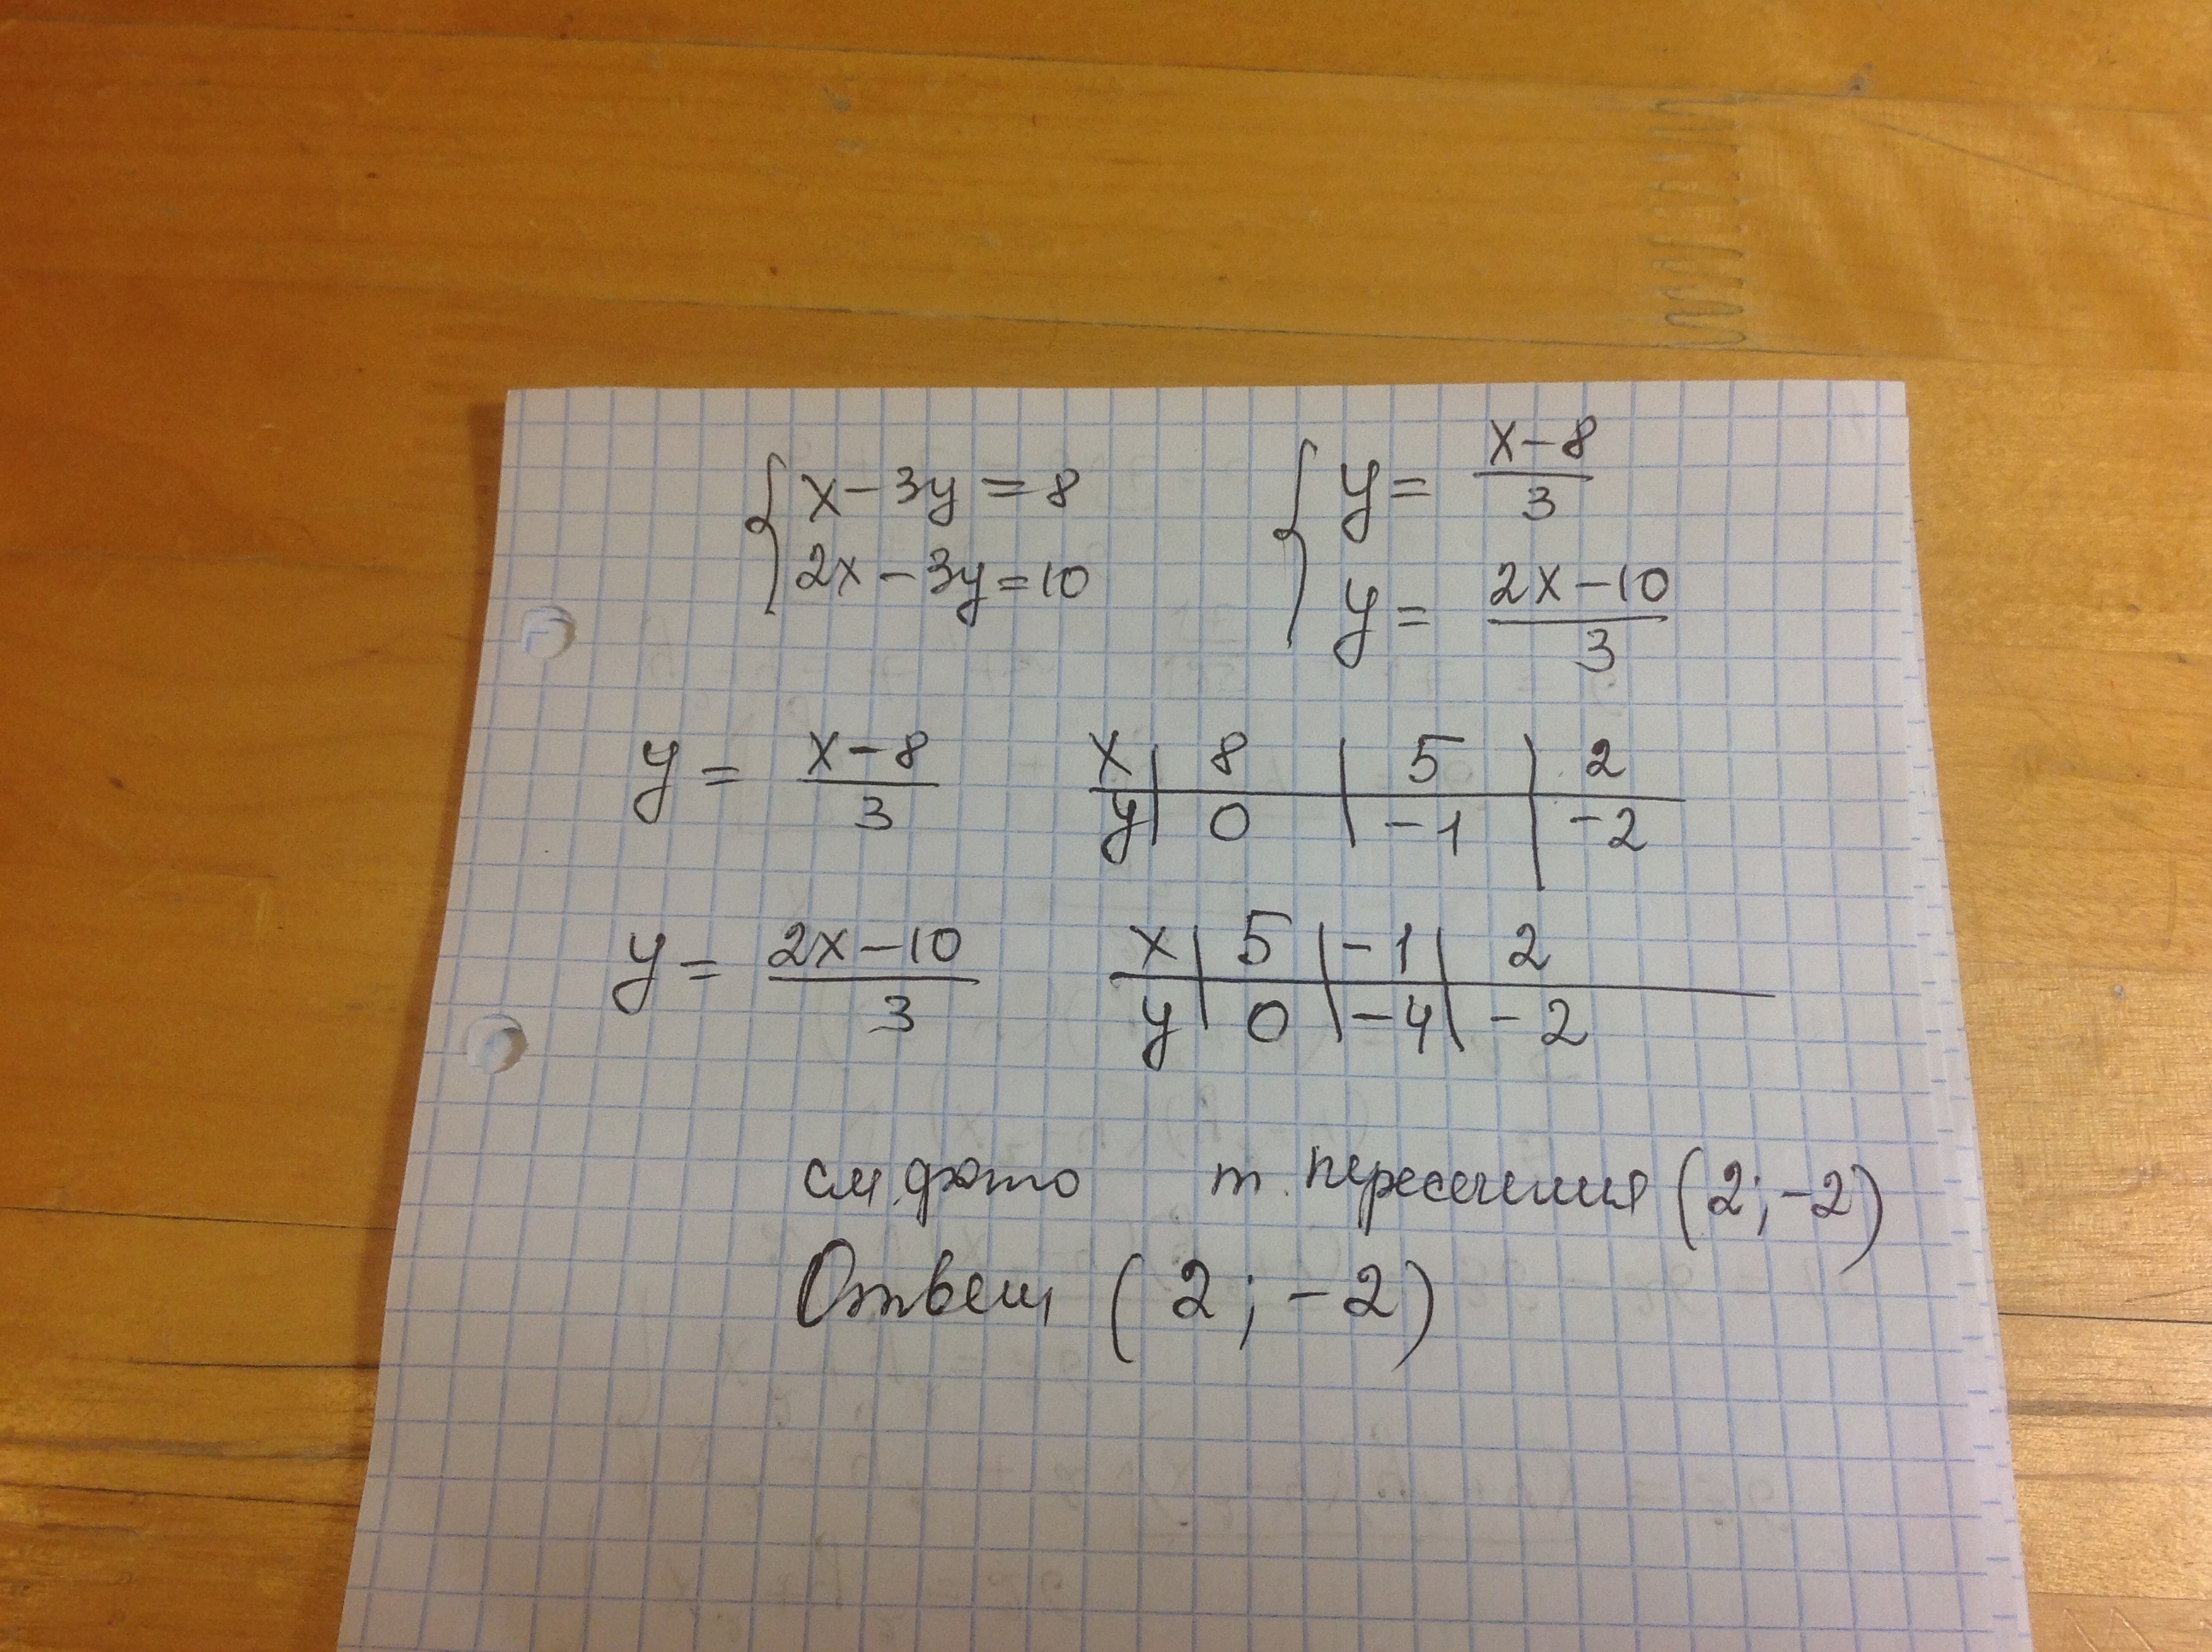 { x - 3y = 8 { y = (x - 8)/3
{ 2x - 3y = 10 { y = (2x - 10)/3
y = (x - 8)/3 x | 8 | 5 | 2
y | 0 | -1 | -2
y = (2x - 10)/3 x | 5 | -1 | 2
y | 0 | -4 | -2
см. фото т. пересечения (2; -2)
Ответ (2; -2)